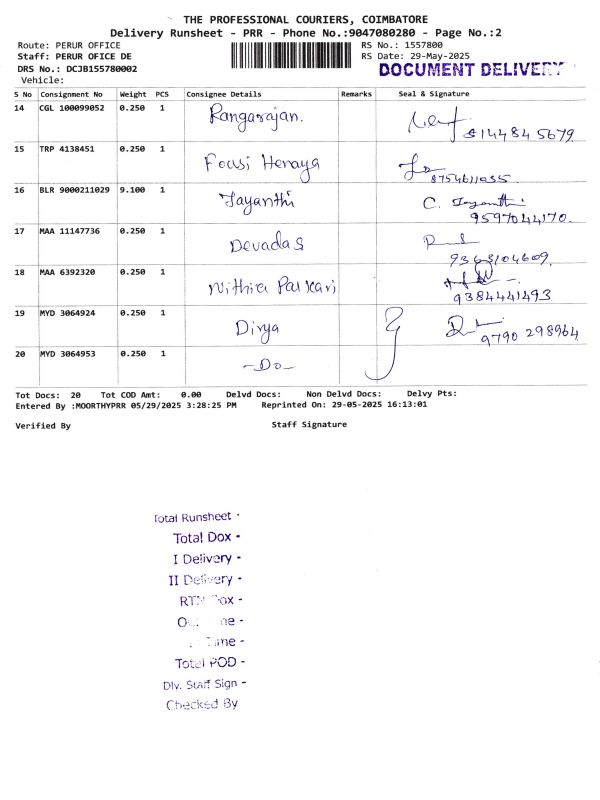 THE PROFESSIONAL COURIERS, COIMBATORE
Delivery Runsheet - PRR - Phone No.:9047080280 - Page No.:2
Route: PERUR OFFICE RS No.: 1557800
Staff: PERUR OFICE DE RS Date: 29-May-2025
DRS No.: DCJB155780002 DOCUMENT DELIVERY
Vehicle:
S No Consignment No Weight PCS Consignee Details Remarks Seal & Signature
14 CGL 100099052 0.250 1 Rangarajan. 8144845679
15 TRP 4138451 0.250 1 Fousi Henaya 8754611035
16 BLR 9000211029 9.100 1 Jayanthi C. Jayanthi
9597044170.
17 MAA 11147736 0.250 1 Devadas
9363104609
18 MAA 6392320 0.250 1 Nithra Paikari
9384441493
19 MYD 3064924 0.250 1 Divya 9790 298964
20 MYD 3064953 0.250 1 -Do-
Tot Docs: 20 Tot COD Amt: 0.00 Delvd Docs: Non Delvd Docs: Delvy Pts:
Entered By :MOORTHYPRR 05/29/2025 3:28:25 PM Reprinted On: 29-05-2025 16:13:01
Verified By Staff Signature
Total Runsheet -
Total Dox -
I Delivery -
II Delivery -
Total POD -
Dlv. Staff Sign -
Checked By